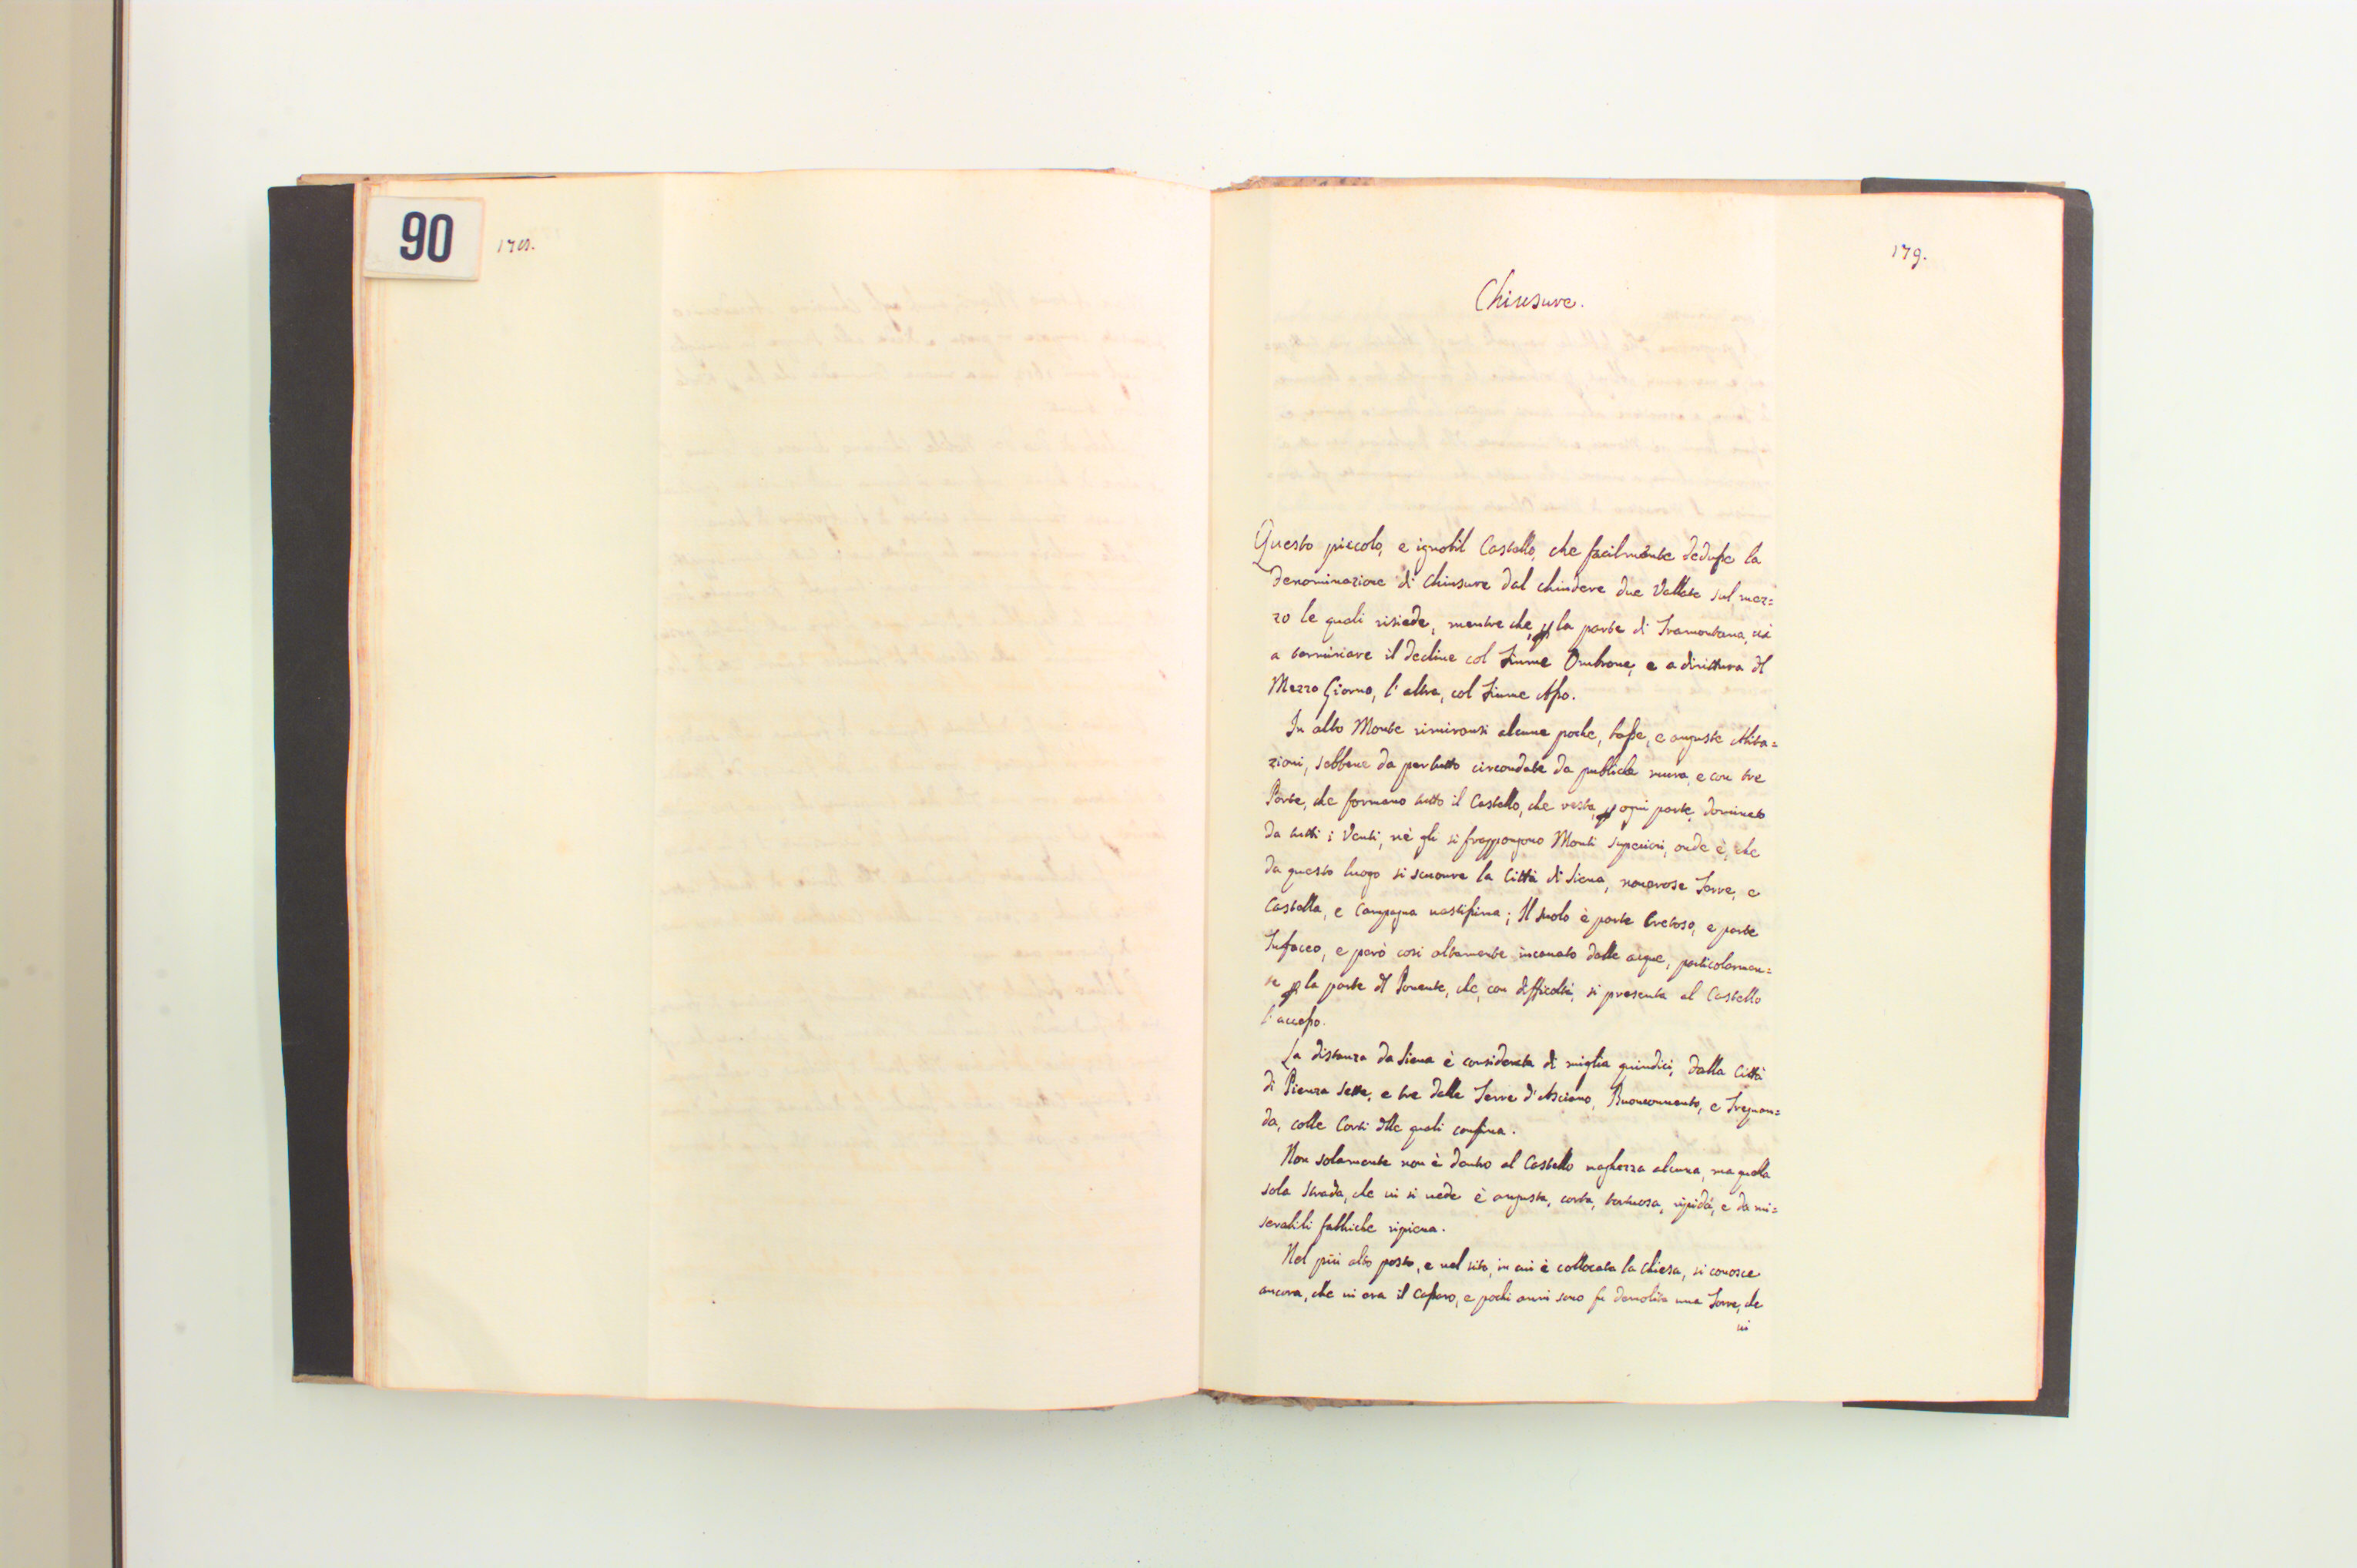 90
178.
179.
Chiusure.
Questo piccolo, e ignobil Castello, che facilmente dedusse la
denominazione di Chiusure dal chiudere due Vallate sul mez=
zo le quali risiede, mentre che, per la parte di Tramontana, và
a terminare il decline col Fiume Ombrone, e a dirittura del
Mezzo Giorno, l'altra, col Fiume Asso.
In alto Monte rimiransi alcune poche, basse, e anguste Abita=
zioni, sebbene da pertutto circondate da publiche mura, e con tre
Porte, che formano tutto il Castello, che resta, per ogni parte, dominato
da tutti i Venti, nè gli si frappongono Monti superiori, onde è, che
da questo luogo si scuopre la Città di Siena, numerose Terre, e
Castella, e Campagna vastissima; Il suolo è parte Cretoso, e parte
Tufaceo, e però così altamente incavato dalle acque, particolarmen=
te per la parte del Ponente, che, con difficoltà, si presenta al Castello
l'accesso.
La distanza da Siena è considerata di miglia quindici, dalla Città
di Pienza sette, e tre dalle Terre d'Asciano, Buonconvento, e Trequan=
da, colle Corti delle quali confina.
Non solamente non è dentro al Castello vaghezza alcuna, ma quella
sola strada, che vi si vede è angusta, corta, tortuosa, ripida, e da mi=
serabili fabbriche ripiena.
Nel più alto posto, e nel sito, in cui è collocata la Chiesa, si conosce
ancora, che vi era il Cassero, e pochi anni sono fu demolita una Torre, che
vi